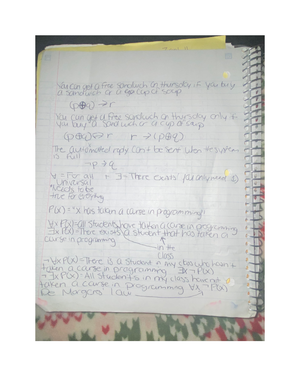 You can get a free sandwich on thursday if you buy
a sandwich or a cup of soup
(p⊕q) → r
You can get a free sandwich on Thursday only if
you buy a sandwich or a cup of soup
r → (p⊕q)
The automated reply can't be sent when the system
is full
¬p → q
∀ = For all
∃ = There exists
Universal
needs to be
true for everything
P(x) = "x has taken a course in programming"
∀x P(x) = all students have taken a course in programming
∃x P(x) = There exists a student that has taken a
course in programming
in the
class
¬∀x P(x) = There is a student in my class who hasn't
taken a course in programming ∃x ¬P(x)
¬∃x P(x) = All students in my class have not
taken a course in programming ∀x ¬P(x)
De Morgan's Law